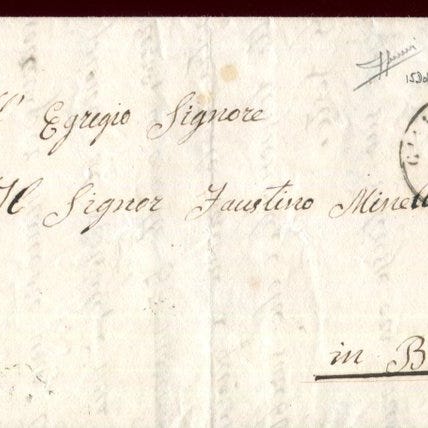 l' Egregio Signore
Il Signor Faustino Minel
in B